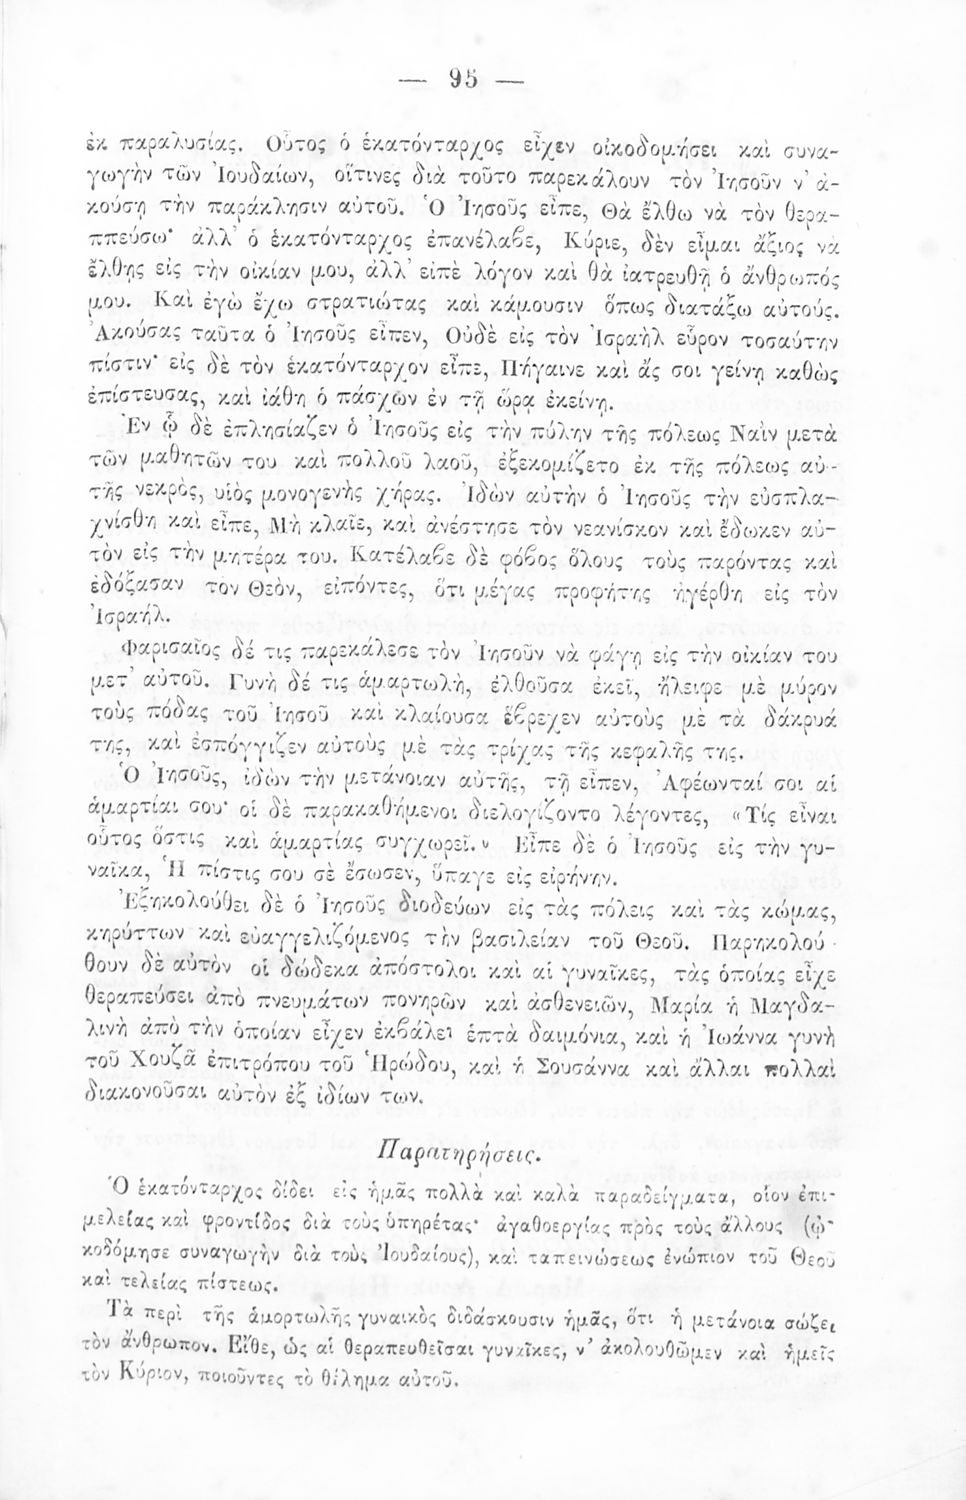 — 95 —
ἐκ παραλυσίας. Οὗτος ὁ ἑκατόνταρχος εἶχεν οἰκοδομήσει καὶ συνα-
γωγὴν τῶν Ἰουδαίων, οἵτινες διὰ τοῦτο παρεκάλουν τὸν Ἰησοῦν ν' ἀ-
κούσῃ τὴν παράκλησιν αὐτοῦ. Ὁ Ἰησοῦς εἶπε, Θὰ ἔλθω νὰ τὸν θερα-
ππεύσω· ἀλλ' ὁ ἑκατόνταρχος ἐπανέλαβε, Κύριε, δὲν εἶμαι ἄξιος νὰ
ἔλθῃς εἰς τὴν οἰκίαν μου, ἀλλ' εἰπὲ λόγον καὶ θὰ ἰατρευθῇ ὁ ἄνθρωπός
μου. Καὶ ἐγὼ ἔχω στρατιώτας καὶ κάμουσιν ὅπως διατάξω αὐτούς.
Ἀκούσας ταῦτα ὁ Ἰησοῦς εἶπεν, Οὐδὲ εἰς τὸν Ἰσραὴλ εὗρον τοσαύτην
πίστιν· εἰς δὲ τὸν ἑκατόνταρχον εἶπε, Πήγαινε καὶ ἄς σοι γείνῃ καθὼς
ἐπίστευσας, καὶ ἰάθη ὁ πάσχων ἐν τῇ ὥρᾳ ἐκείνῃ.
Ἐν ᾧ δὲ ἐπλησίαζεν ὁ Ἰησοῦς εἰς τὴν πύλην τῆς πόλεως Ναῒν μετὰ
τῶν μαθητῶν του καὶ πολλοῦ λαοῦ, ἐξεκομίζετο ἐκ τῆς πόλεως αὐ-
τῆς νεκρὸς, υἱὸς μονογενὴς χήρας. Ἰδὼν αὐτὴν ὁ Ἰησοῦς τὴν εὐσπλα-
χνίσθη καὶ εἶπε, Μὴ κλαῖε, καὶ ἀνέστησε τὸν νεανίσκον καὶ ἔδωκεν αὐ-
τὸν εἰς τὴν μητέρα του. Κατέλαβε δὲ φόβος ὅλους τοὺς παρόντας καὶ
ἐδόξασαν τὸν Θεὸν, εἰπόντες, ὅτι μέγας προφήτης ἠγέρθη εἰς τὸν
Ἰσραήλ.
Φαρισαῖος δέ τις παρεκάλεσε τὸν Ἰησοῦν νὰ φάγῃ εἰς τὴν οἰκίαν του
μετ' αὐτοῦ. Γυνὴ δέ τις ἁμαρτωλὴ, ἐλθοῦσα ἐκεῖ, ἤλειφε μὲ μύρον
τοὺς πόδας τοῦ Ἰησοῦ καὶ κλαίουσα ἔβρεχεν αὐτοὺς μὲ τὰ δάκρυά
της, καὶ ἐσπόγγιζεν αὐτοὺς μὲ τὰς τρίχας τῆς κεφαλῆς της.
Ὁ Ἰησοῦς, ἰδὼν τὴν μετάνοιαν αὐτῆς, τῇ εἶπεν, Ἀφέωνταί σοι αἱ
ἁμαρτίαι σου· οἱ δὲ παρακαθήμενοι διελογίζοντο λέγοντες, «Τίς εἶναι
οὗτος ὅστις καὶ ἁμαρτίας συγχωρεῖ.» Εἶπε δὲ ὁ Ἰησοῦς εἰς τὴν γυ-
ναῖκα, Ἡ πίστις σου σὲ ἔσωσεν, ὕπαγε εἰς εἰρήνην.
Ἐξηκολούθει δὲ ὁ Ἰησοῦς διοδεύων εἰς τὰς πόλεις καὶ τὰς κώμας,
κηρύττων καὶ εὐαγγελιζόμενος τὴν βασιλείαν τοῦ Θεοῦ. Παρηκολού-
θουν δὲ αὐτὸν οἱ δώδεκα ἀπόστολοι καὶ αἱ γυναῖκες, τὰς ὁποίας εἶχε
θεραπεύσει ἀπὸ πνευμάτων πονηρῶν καὶ ἀσθενειῶν, Μαρία ἡ Μαγδα-
λινὴ ἀπὸ τὴν ὁποίαν εἶχεν ἐκβάλει ἑπτὰ δαιμόνια, καὶ ἡ Ἰωάννα γυνὴ
τοῦ Χουζᾶ ἐπιτρόπου τοῦ Ἡρώδου, καὶ ἡ Σουσάννα καὶ ἄλλαι πολλαὶ
διακονοῦσαι αὐτὸν ἐξ ἰδίων των.
Παρατηρήσεις.
Ὁ ἑκατόνταρχος δίδει εἰς ἡμᾶς πολλὰ καὶ καλὰ παραδείγματα, οἷον ἐπι-
μελείας καὶ φροντίδος διὰ τοὺς ὑπηρέτας· ἀγαθοεργίας πρὸς τοὺς ἄλλους (ᾠ-
κοδόμησε συναγωγὴν διὰ τοὺς Ἰουδαίους), καὶ ταπεινώσεως ἐνώπιον τοῦ Θεοῦ
καὶ τελείας πίστεως.
Τὰ περὶ τῆς ἁμορτωλῆς γυναικὸς διδάσκουσιν ἡμᾶς, ὅτι ἡ μετάνοια σώζει
τὸν ἄνθρωπον. Εἴθε, ὡς αἱ θεραπευθεῖσαι γυναῖκες, ν' ἀκολουθῶμεν καὶ ἡμεῖς
τὸν Κύριον, ποιοῦντες τὸ θέλημα αὐτοῦ.